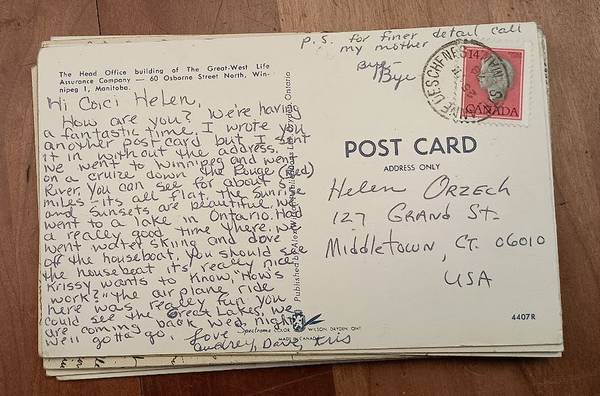 P.S. for finer detail call
my mother
Bye-
Bye
The Head Office building of The Great-West Life
Assurance Company — 60 Osborne Street North, Win-
nipeg 1, Manitoba.
Hi Coici Helen,
How are you? We're having
a fantastic time. I wrote you
another postcard but I sent
it in without the address.
We went to Winnipeg and went
on a cruise down the Rouge (Red)
River. You can see for about 5
miles - its all flat. The sunrise
and sunsets are beautiful. We
went to a lake in Ontario. Had
a really good time there. We
went water skiing and dove
off the houseboat. You should see
the houseboat it's really nice
Krissy wants to know, "How's
work?" The airplane ride
here was really fun. You
could see the Great Lakes. We
are coming back wed. night
We'll gotta go,
Love
Audrey, Dave, Kris
Published by Alex Wilson
Ontario
POST CARD
ADDRESS ONLY
Helen Orzech
127 Grand St.
Middletown, CT. 06010
USA
14
CANADA
DESCHENES
Spectrome COLOR
WILSON, DRYDEN, ONT.
MADE IN CANADA
4407R